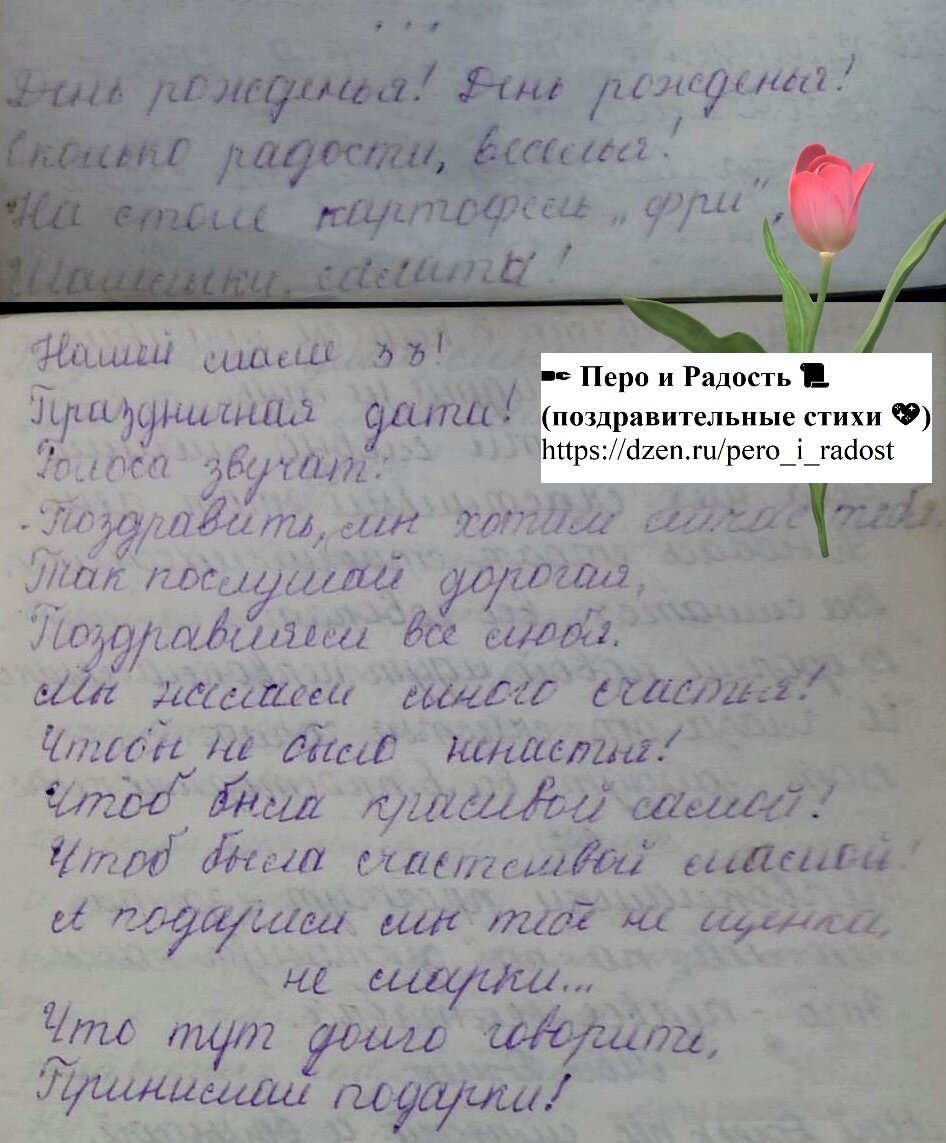 ...
День рожденья! День рожденья!
Сколько радости, веселья!
На столе картофель „фри",
Шашлыки, салаты!
Нашей маме 33!
Праздничная дата!
Голоса звучат:
- Поздравить, мы хотим сейчас тебя,
Так послушай дорогая,
Поздравляем все любя.
Мы желаем много счастья!
Чтобы не было ненастья!
Чтоб была красивой самой!
Чтоб была счастливой мамой!
А подарим мы тебе не щенка,
не марки...
Что тут долго говорить,
Принимай подарки!
✒ Перо и Радость 📜
(поздравительные стихи 💖)
https://dzen.ru/pero_i_radost